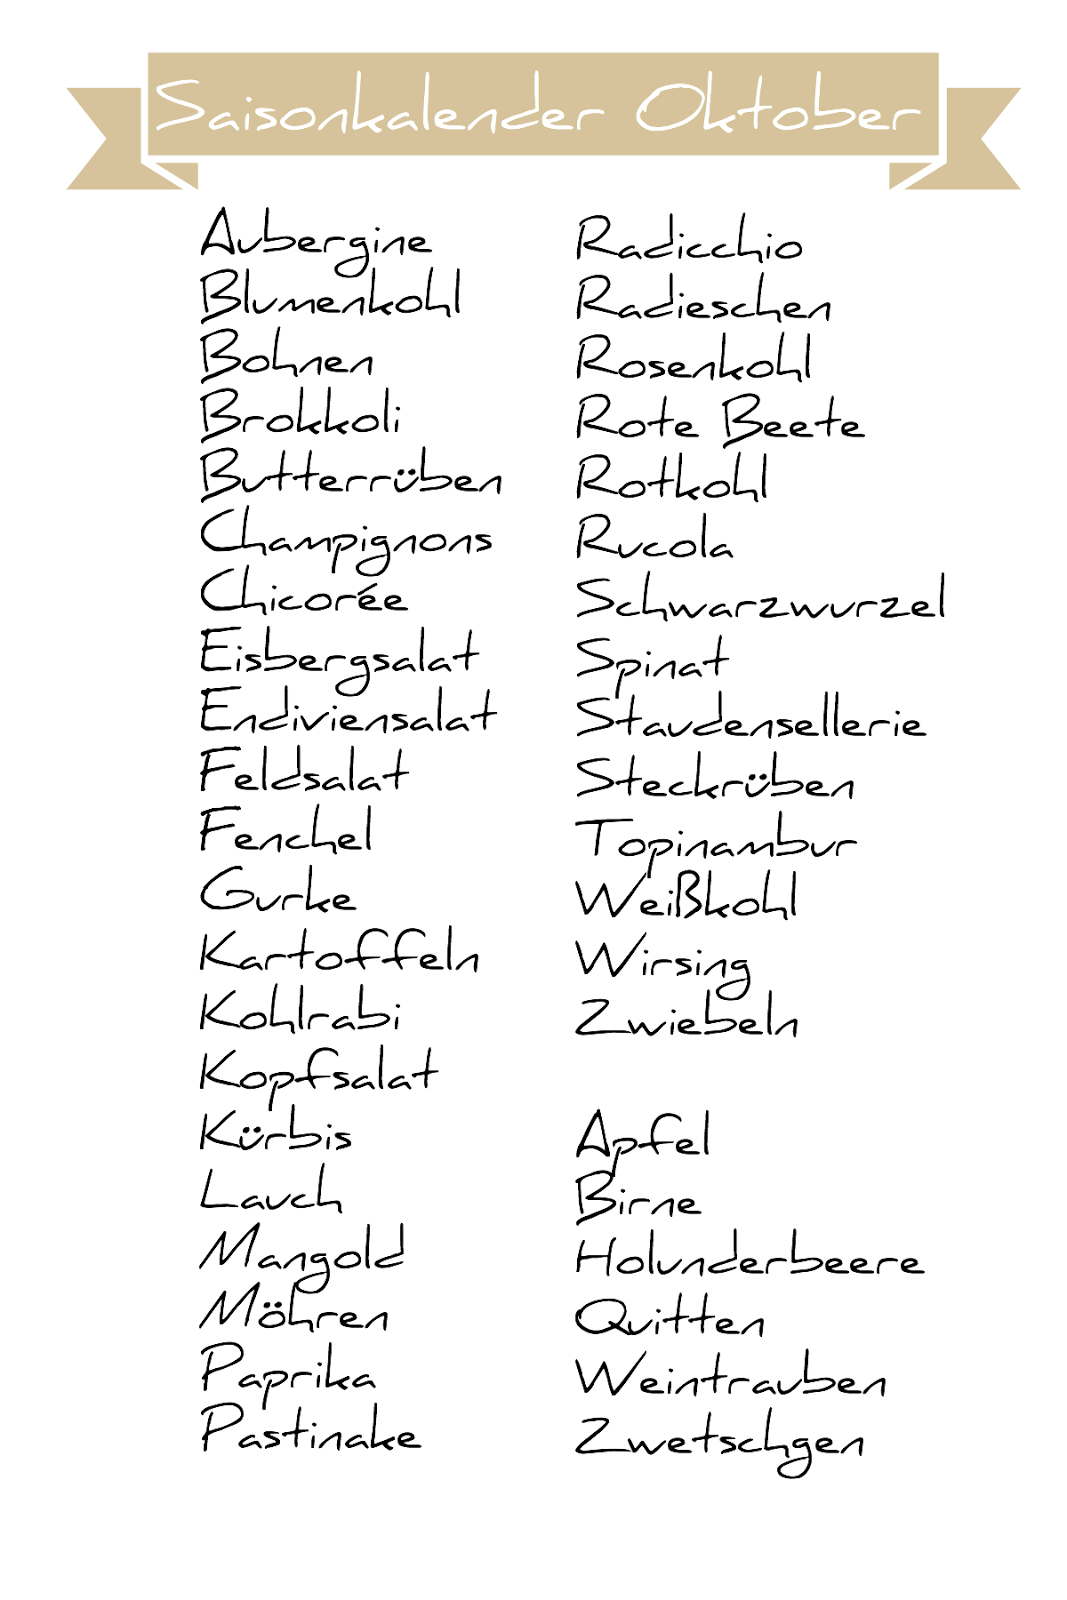 Saisonkalender Oktober
Aubergine
Blumenkohl
Bohnen
Brokkoli
Butterrüben
Champignons
Chicorée
Eisbergsalat
Endiviensalat
Feldsalat
Fenchel
Gurke
Kartoffeln
Kohlrabi
Kopfsalat
Kürbis
Lauch
Mangold
Möhren
Paprika
Pastinake
Radicchio
Radieschen
Rosenkohl
Rote Beete
Rotkohl
Rucola
Schwarzwurzel
Spinat
Staudensellerie
Steckrüben
Topinambur
Weißkohl
Wirsing
Zwiebeln
Apfel
Birne
Holunderbeere
Quitten
Weintrauben
Zwetschgen